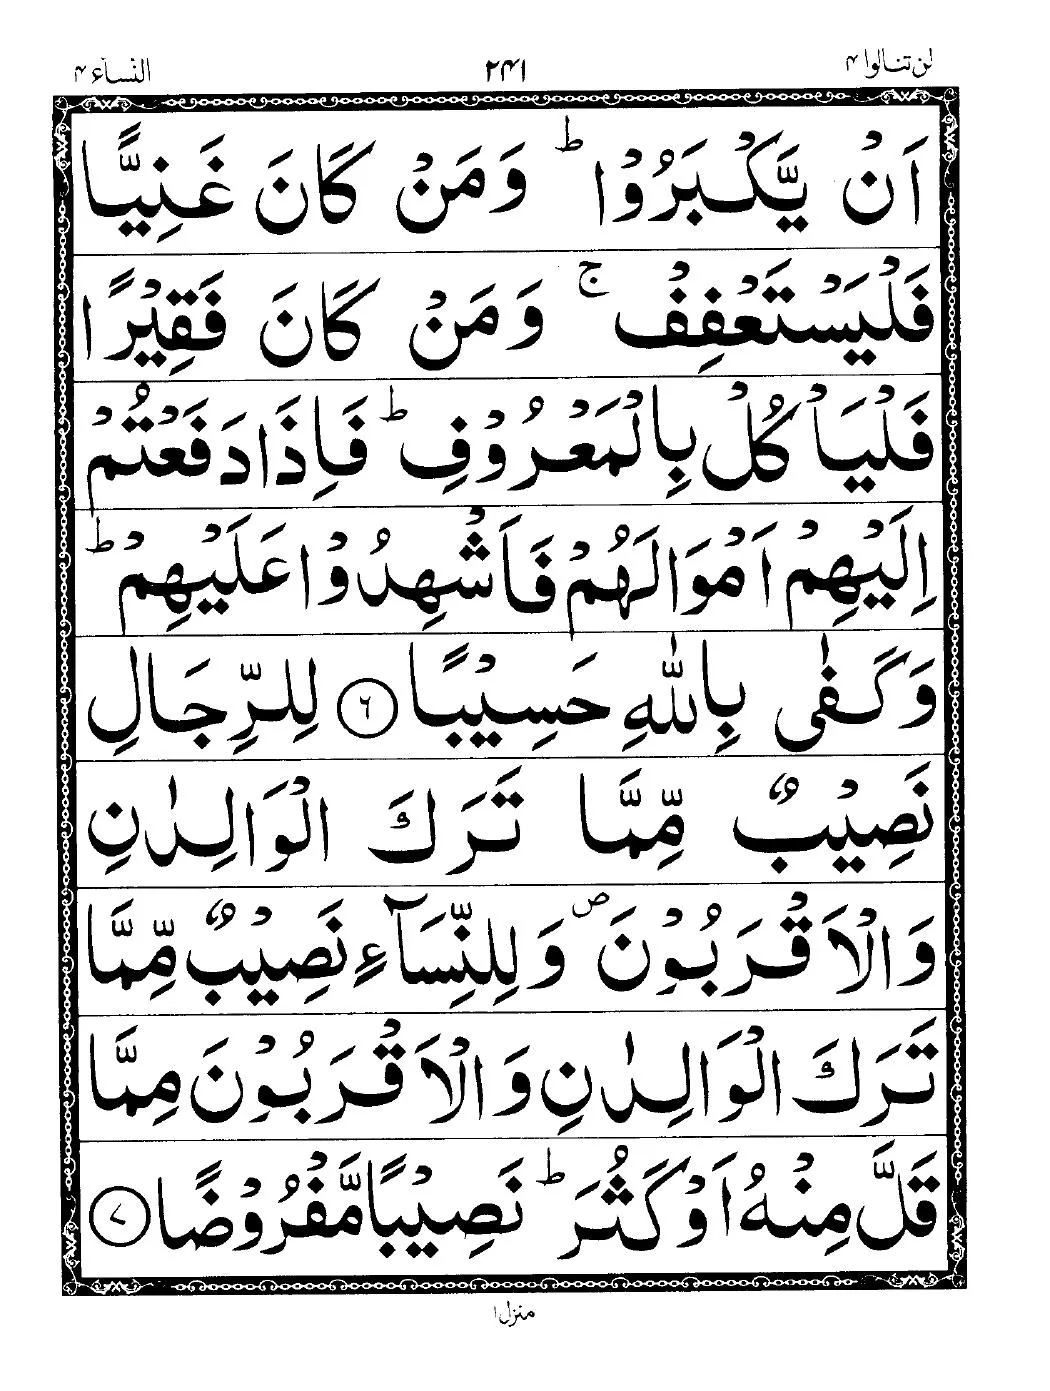 لن تنالوا ۴ ۲۴۱ النسآء ۴
اَنْ يَّكْبَرُوْا ؕ وَمَنْ كَانَ غَنِيًّا
فَلْيَسْتَعْفِفْ ۚ وَمَنْ كَانَ فَقِيْرًا
فَلْيَاْكُلْ بِالْمَعْرُوْفِ ؕ فَاِذَا دَفَعْتُمْ
اِلَيْهِمْ اَمْوَالَهُمْ فَاَشْهِدُوْا عَلَيْهِمْ ؕ
وَكَفٰى بِاللّٰهِ حَسِيْبًا ﴿۶﴾ لِلرِّجَالِ
نَصِيْبٌ مِّمَّا تَرَكَ الْوَالِدٰنِ
وَالْاَقْرَبُوْنَ ۪ وَلِلنِّسَآءِ نَصِيْبٌ مِّمَّا
تَرَكَ الْوَالِدٰنِ وَالْاَقْرَبُوْنَ مِمَّا
قَلَّ مِنْهُ اَوْ كَثُرَ ؕ نَصِيْبًا مَّفْرُوْضًا ﴿۷﴾
منزل ۱